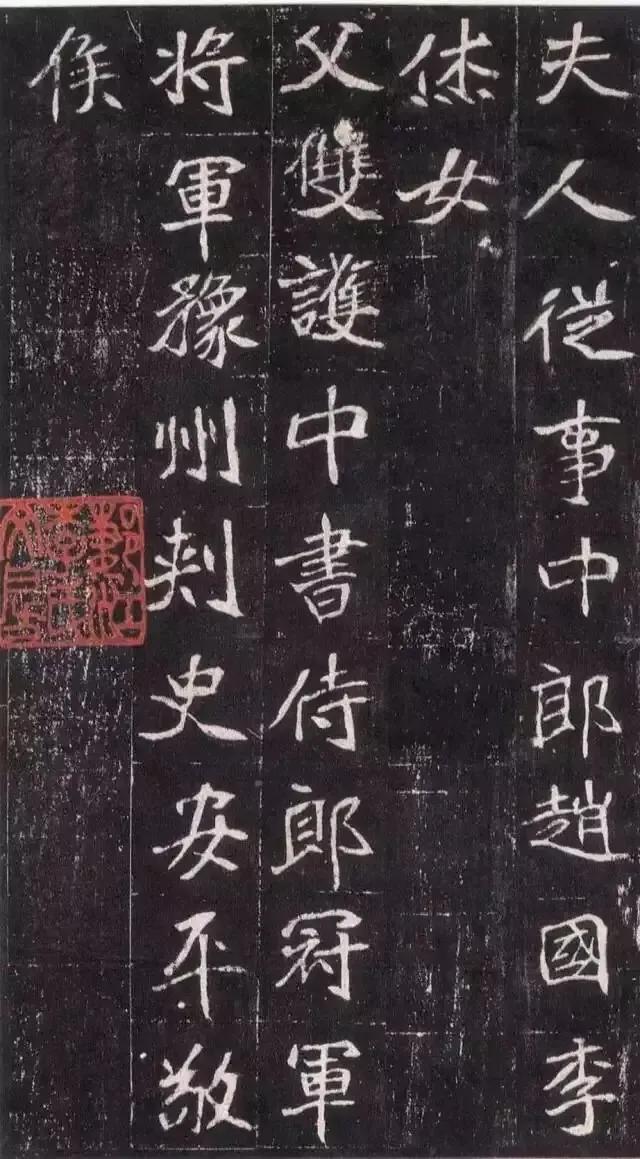 夫人從事中郎趙國李
烋女
父雙護中書侍郎冠軍
將軍豫州刺史安平敬
侯